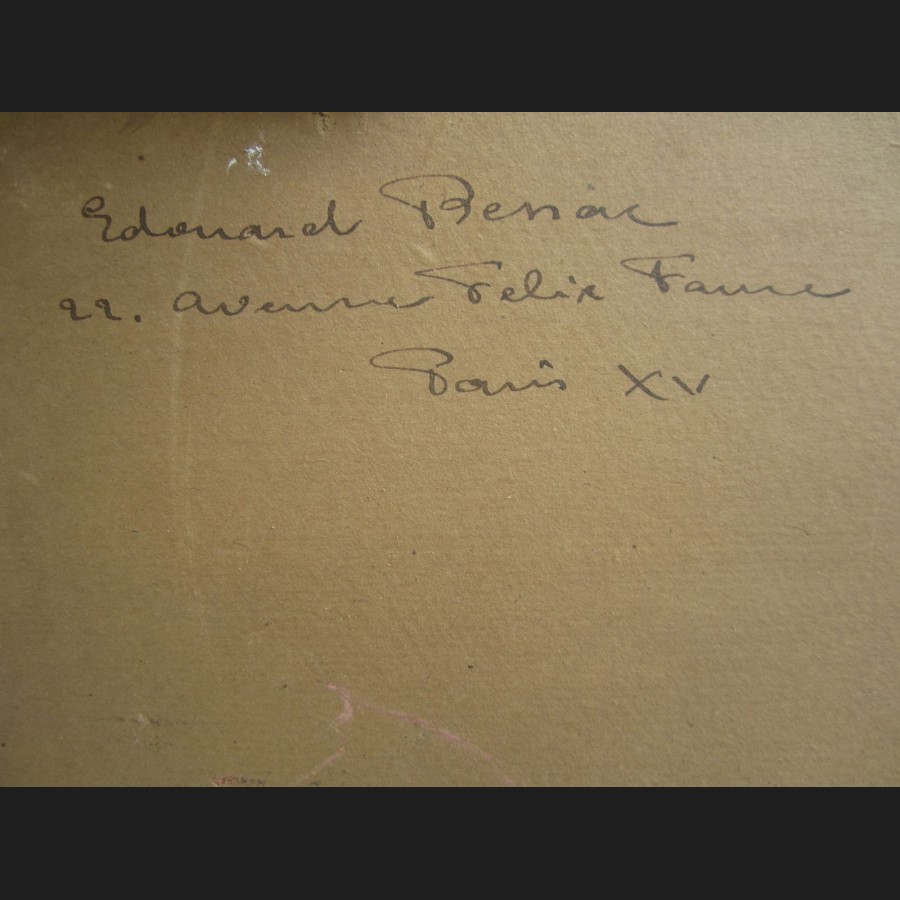 Edouard Bessac
22. avenue Felix Faure
Paris XV